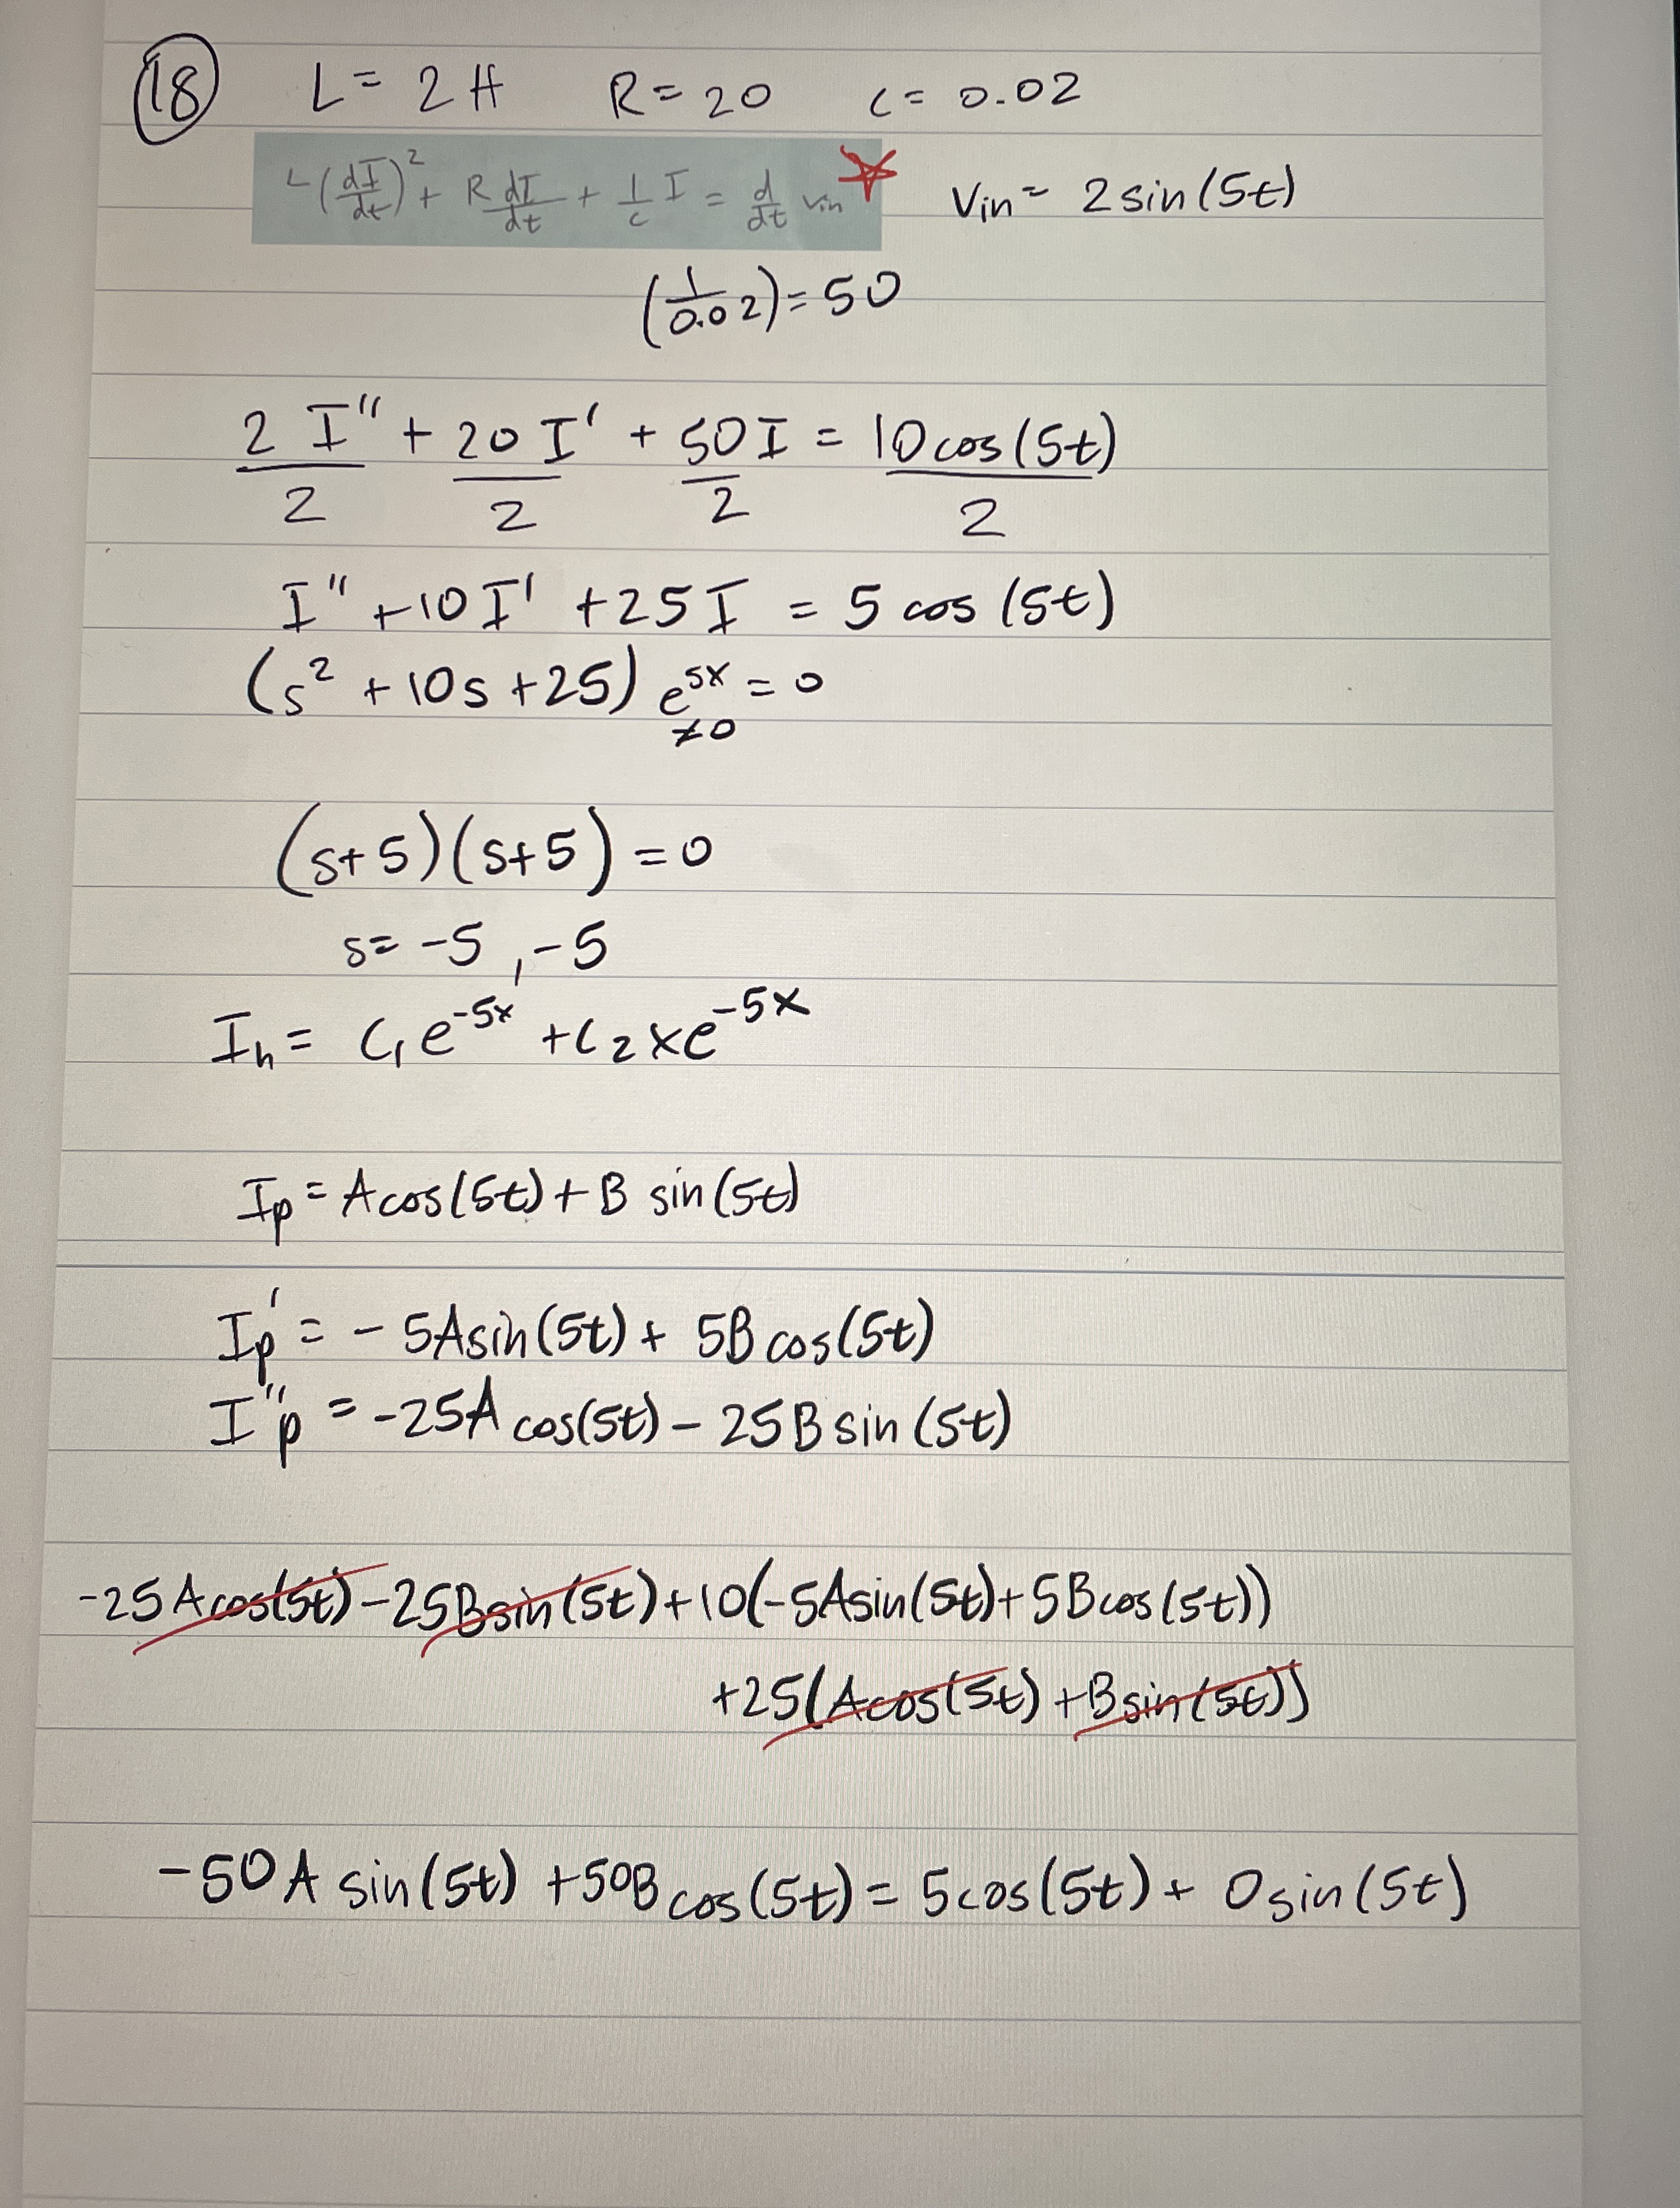 18 L = 2 H R = 20 C = 0.02
L(dI/dt)² + R dI/dt + 1/c I = d/dt vin Vin = 2 sin(5t)
(1/0.02) = 50
2 I''/2 + 20 I'/2 + 50 I/2 = 10 cos(5t)/2
I'' + 10 I' + 25 I = 5 cos (5t)
(s² + 10s + 25) e^sx = 0
≠0
(s+5)(s+5) = 0
s = -5, -5
Ih = C₁e^-5x + C₂xe^-5x
Ip = Acos(5t) + B sin(5t)
Ip' = - 5Asin(5t) + 5B cos(5t)
I''p = -25A cos(5t) - 25B sin (5t)
-25Acos(5t) - 25Bsin(5t) + 10(-5Asin(5t) + 5Bcos(5t))
+25(Acos(5t) + Bsin(5t))
-50A sin(5t) + 50B cos(5t) = 5cos(5t) + 0sin(5t)